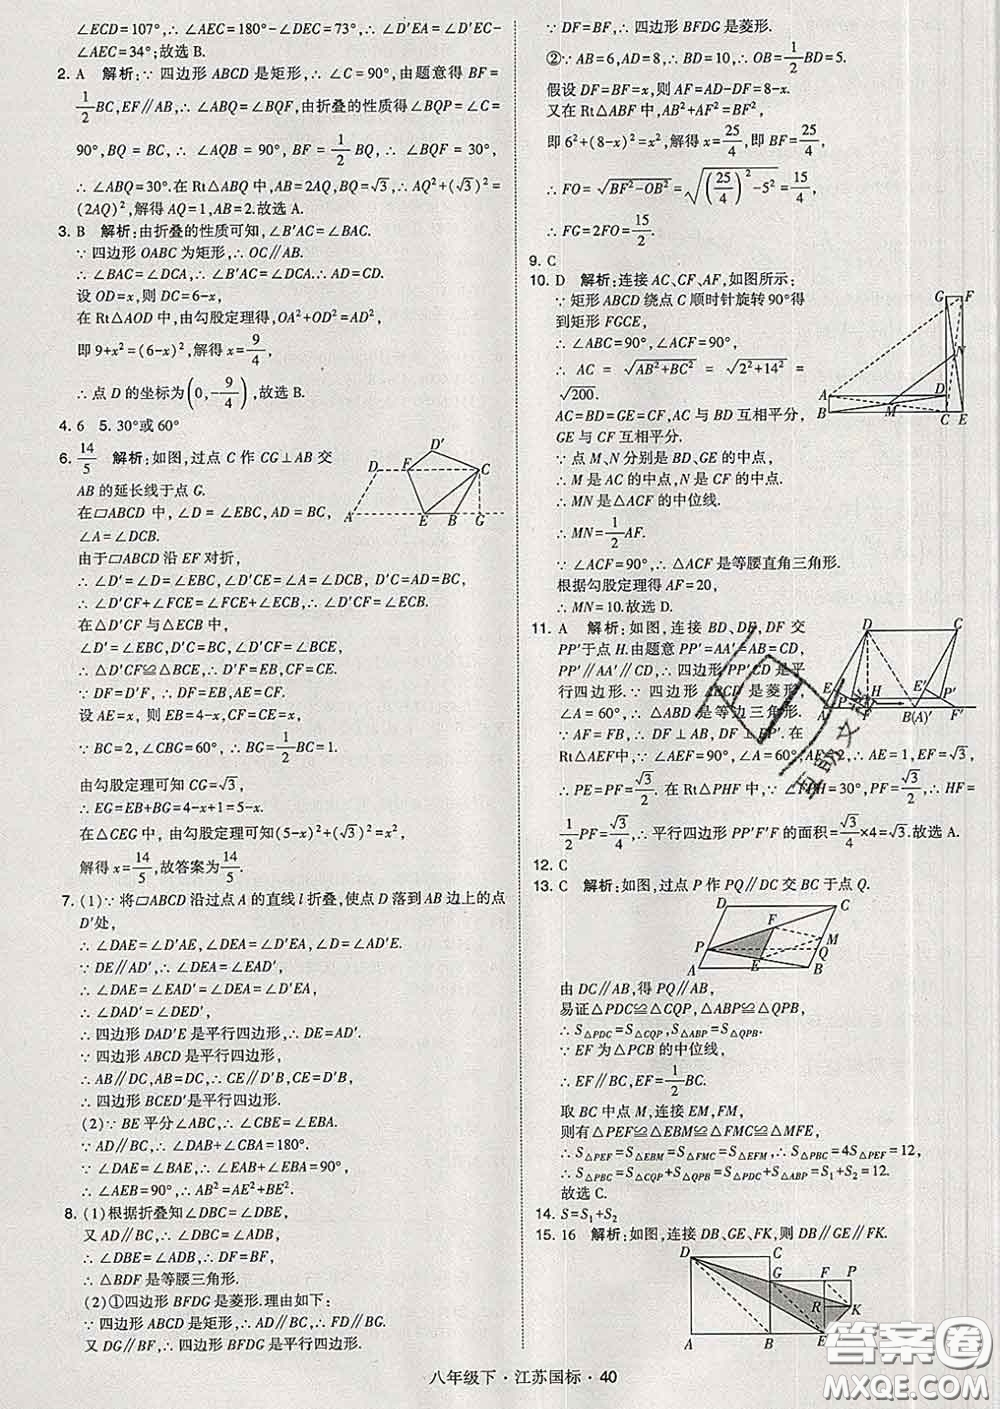 ∠ECD=107°,∴∠AEC=180°-∠DEC=73°,∴∠D'EA=∠D'EC-
∠AEC=34°;故选 B.
2. A 解析:∵四边形 ABCD 是矩形,∴∠C=90°,由题意得 BF=
1/2BC,EF∥AB,∴∠ABQ=∠BQF,由折叠的性质得∠BQP=∠C=
90°,BQ=BC,∴∠AQB=90°,BF=1/2BQ,∴∠BQF=30°,
∴∠ABQ=30°.在 Rt△ABQ 中,AB=2AQ,BQ=√3,∴AQ²+(√3)²=
(2AQ)²,解得 AQ=1,AB=2.故选 A.
3. B 解析:由折叠的性质可知,∠B'AC=∠BAC.
∵四边形 OABC 为矩形,∴OC∥AB.
∴∠BAC=∠DCA,∴∠B'AC=∠DCA,∴AD=CD.
设 OD=x,则 DC=6-x,
在 Rt△AOD 中,由勾股定理得,OA²+OD²=AD²,
即 9+x²=(6-x)²,解得 x=9/4,
∴点 D 的坐标为(0,-9/4),故选 B.
4. 6 5. 30°或 60°
6. 14/5 解析:如图,过点 C 作 CG⊥AB 交
AB 的延长线于点 G.
在▱ABCD 中,∠D=∠EBC,AD=BC,
∠A=∠DCB.
由于▱ABCD 沿 EF 对折,
∴∠D'=∠D=∠EBC,∠D'CE=∠A=∠DCB,D'C=AD=BC,
∴∠D'CF+∠FCE=∠FCE+∠ECB,∴∠D'CF=∠ECB.
在△D'CF 与△ECB 中,
∴△D'CF≌△ECB,∴∠D'CF=∠ECB.
∴D'F=EB,CF=CE.
∵DF=D'F,∴DF=EB,AE=CF.
设 AE=x,则 EB=4-x,CF=x,
∵BC=2,∠CBG=60°,∴BG=1/2BC=1.
由勾股定理可知 CG=√3,
∴EG=EB+BG=4-x+1=5-x.
在△CEG 中,由勾股定理可知(5-x)²+(√3)²=x²,
解得 x=14/5,故答案为14/5.
7. (1)∵将▱ABCD 沿过点 A 的直线 l 折叠,使点 D 落到 AB 边上的点
D'处,
∴∠DAE=∠D'AE,∠DEA=∠D'EA,∠D=∠AD'E.
∵DE∥AD',∴∠DEA=∠EAD',
∴∠DAE=∠EAD'=∠DEA=∠D'EA,
∴∠DAD'=∠DED',
∴四边形 DAD'E 是平行四边形,∴DE=AD'.
∵四边形 ABCD 是平行四边形,
∴AB∥DC,AB=DC,∴CE∥D'B,CE=D'B,
∴四边形 BCED'是平行四边形.
(2)∵BE 平分∠ABC,∴∠CBE=∠EBA.
∵AD∥BC,∴∠DAB+∠CBA=180°.
∵∠DAE=∠BAE,∴∠EAB+∠EBA=90°,
∴∠AEB=90°,∴AB²=AE²+BE².
8. (1)根据折叠知∠DBC=∠DBE,
又 AD∥BC,∴∠DBC=∠ADB,
∴∠DBE=∠ADB,∴DF=BF,
∴△BDF 是等腰三角形.
(2)①四边形 BFDG 是菱形.理由如下:
∵四边形 ABCD 是矩形,∴AD∥BC,∴FD∥BG.
又 DG∥BF,∴四边形 BFDG 是平行四边形.
∵DF=BF,∴四边形 BFDG 是菱形.
②∵AB=6,AD=8,∴BD=10,∴OB=1/2BD=5.
假设 DF=BF=x,则 AF=AD-DF=8-x.
又在 Rt△ABF 中,AB²+AF²=BF²,
即 6²+(8-x)²=x²,解得 x=25/4,即 BF=25/4,
∴FO=√(BF²-OB²)=√((25/4)²-5²)=15/4,
∴FG=2FO=15/2.
9. C
10. D 解析:连接 AC、CF、AF,如图所示:
∵矩形 ABCD 绕点 C 顺时针旋转 90°得
到矩形 FGCE,
∴∠ABC=90°,∠ACF=90°,
∴AC=√(AB²+BC²)=√(2²+14²)=
√200.
AC=BD=GE=CF,AC 与 BD 互相平分,
GE 与 CF 互相平分.
∵点 M、N 分别是 BD、GE 的中点,
∴M 是 AC 的中点,N 是 CF 的中点,
∴MN 是△ACF 的中位线.
∴MN=1/2AF.
∵∠ACF=90°,∴△ACF 是等腰直角三角形.
根据勾股定理得 AF=20,
∴MN=10.故选 D.
11. A 解析:如图,连接 BD、DE、DF 交
PP'于点 H.由题意 PP'=AA'=AB=CD,
PP'∥AA'∥CD,∴四边形 PP'CD 是平
行四边形.∵四边形 ABCD 是菱形,
∠A=60°,∴△ABD 是等边三角形.
∵AF=FB,∴DF⊥AB,DF⊥PP'.在
Rt△AEF 中,∵∠AEF=90°,∠A=60°,AF=2,∴AE=1,EF=√3,
∴PE=PF=√3/2.在 Rt△PHF 中,∵∠FPH=30°,PF=√3/2,∴HF=
1/2PF=√3/4,∴平行四边形 PP'F'F 的面积=√3/4×4=√3.故选 A.
12. C
13. C 解析:如图,过点 P 作 PQ∥DC 交 BC 于点 Q.
由 DC∥AB,得 PQ∥AB,
易证△PDC≌△CQP,△ABP≌△QPB,
∴S△PDC=S△CQP,S△ABP=S△QPB.
∵EF 为△PCB 的中位线,
∴EF∥BC,EF=1/2BC.
取 BC 中点 M,连接 EM,FM,
则有△PEF≌△EBM≌△FMC≌△MFE,
∴S△PEF=S△EBM=S△FMC=S△MFE,∴S△PBC=4S△PEF=12,
∴S△PBC=S△CQP+S△QPB=S△PDC+S△ABP=S₁+S₂=12.
故选 C.
14. S=S₁+S₂
15. 16 解析:如图,连接 DB、GE、FK,则 DB∥GE∥FK.
八年级下·江苏国标·40
答案圈
MXQE.COM